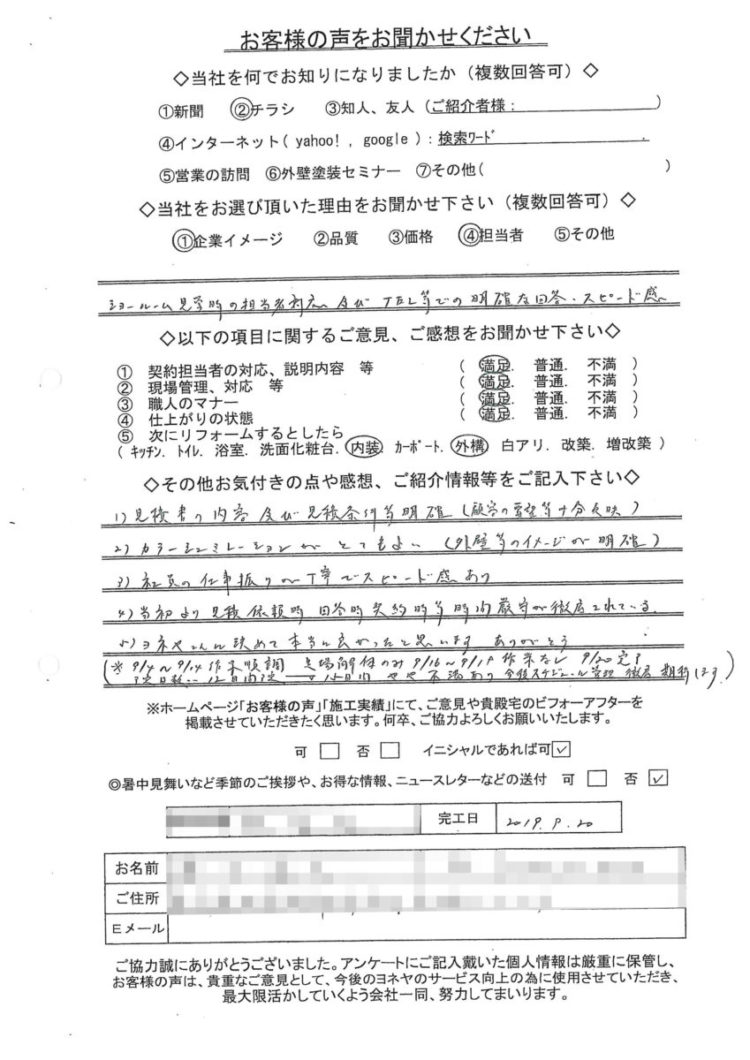 お客様の声をお聞かせください
◇当社を何でお知りになりましたか(複数回答可)◇
①新聞 ②チラシ ③知人、友人(ご紹介者様: )
④インターネット( yahoo! , google ):検索ワード .
⑤営業の訪問 ⑥外壁塗装セミナー ⑦その他( )
◇当社をお選び頂いた理由をお聞かせ下さい(複数回答可)◇
①企業イメージ ②品質 ③価格 ④担当者 ⑤その他
ショールーム見学時の担当者対応 及び TEL等での明確な回答・スピード感
◇以下の項目に関するご意見、ご感想をお聞かせ下さい◇
① 契約担当者の対応、説明内容 等 ( 満足. 普通. 不満 )
② 現場管理、対応 等 ( 満足. 普通. 不満 )
③ 職人のマナー ( 満足. 普通. 不満 )
④ 仕上がりの状態 ( 満足. 普通. 不満 )
⑤ 次にリフォームするとしたら
( キッチン. トイレ. 浴室. 洗面化粧台. 内装. カーポート. 外構. 白アリ. 改築. 増改築 )
◇その他お気付きの点や感想、ご紹介情報等をご記入下さい◇
1) 見積書の内容 及び 見積条件等明確 (顧客の要望等十分反映)
2) カラーシュミレーションが とてもよい (外壁等のイメージが明確)
3) 社員の仕事振りが丁寧でスピード感あり
4) 当初より見積依頼時 回答時 契約時等 時間厳守が徹底されている.
5) ヨネヤさんに決めて本当に良かったと思います ありがとう
(※ 9/4〜9/14 作業順調 足場解体のみ 9/16〜9/19 作業なし 9/20 完了
やや不満あり 今後スケジュール管理 徹底 期待します)
※ホームページ「お客様の声」「施工実績」にて、ご意見や貴殿宅のビフォーアフターを
掲載させていただきたく思います。何卒、ご協力よろしくお願いいたします。
可 □ 否 □ イニシャルであれば可 ☑
◎暑中見舞いなど季節のご挨拶や、お得な情報、ニュースレターなどの送付 可 □ 否 ☑
完工日 2019. 9. 20
お名前
ご住所
Eメール
ご協力誠にありがとうございました。アンケートにご記入戴いた個人情報は厳重に保管し、
お客様の声は、貴重なご意見として、今後のヨネヤのサービス向上の為に使用させていただき、
最大限活かしていくよう会社一同、努力してまいります。